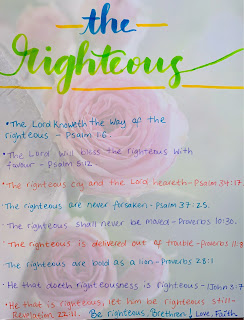 the
righteous
• The Lord Knoweth the way of the
righteous - Psalm 1:6.
• The Lord will bless the righteous with
favour - Psalm 5:12.
• The righteous cry and the Lord heareth - Psalm 34:17.
• The righteous are never forsaken - Psalm 37:25.
• The righteous shall never be moved - Proverbs 10:30.
• The righteous is delivered out of trouble - Proverbs 11:8
• The righteous are bold as a lion - Proverbs 28:1
• He that doeth righteousness is righteous - 1 John 3:7
• He that is righteous, let him be righteous still -
Revelation 22:11. Be righteous Brethren! Love, Faith